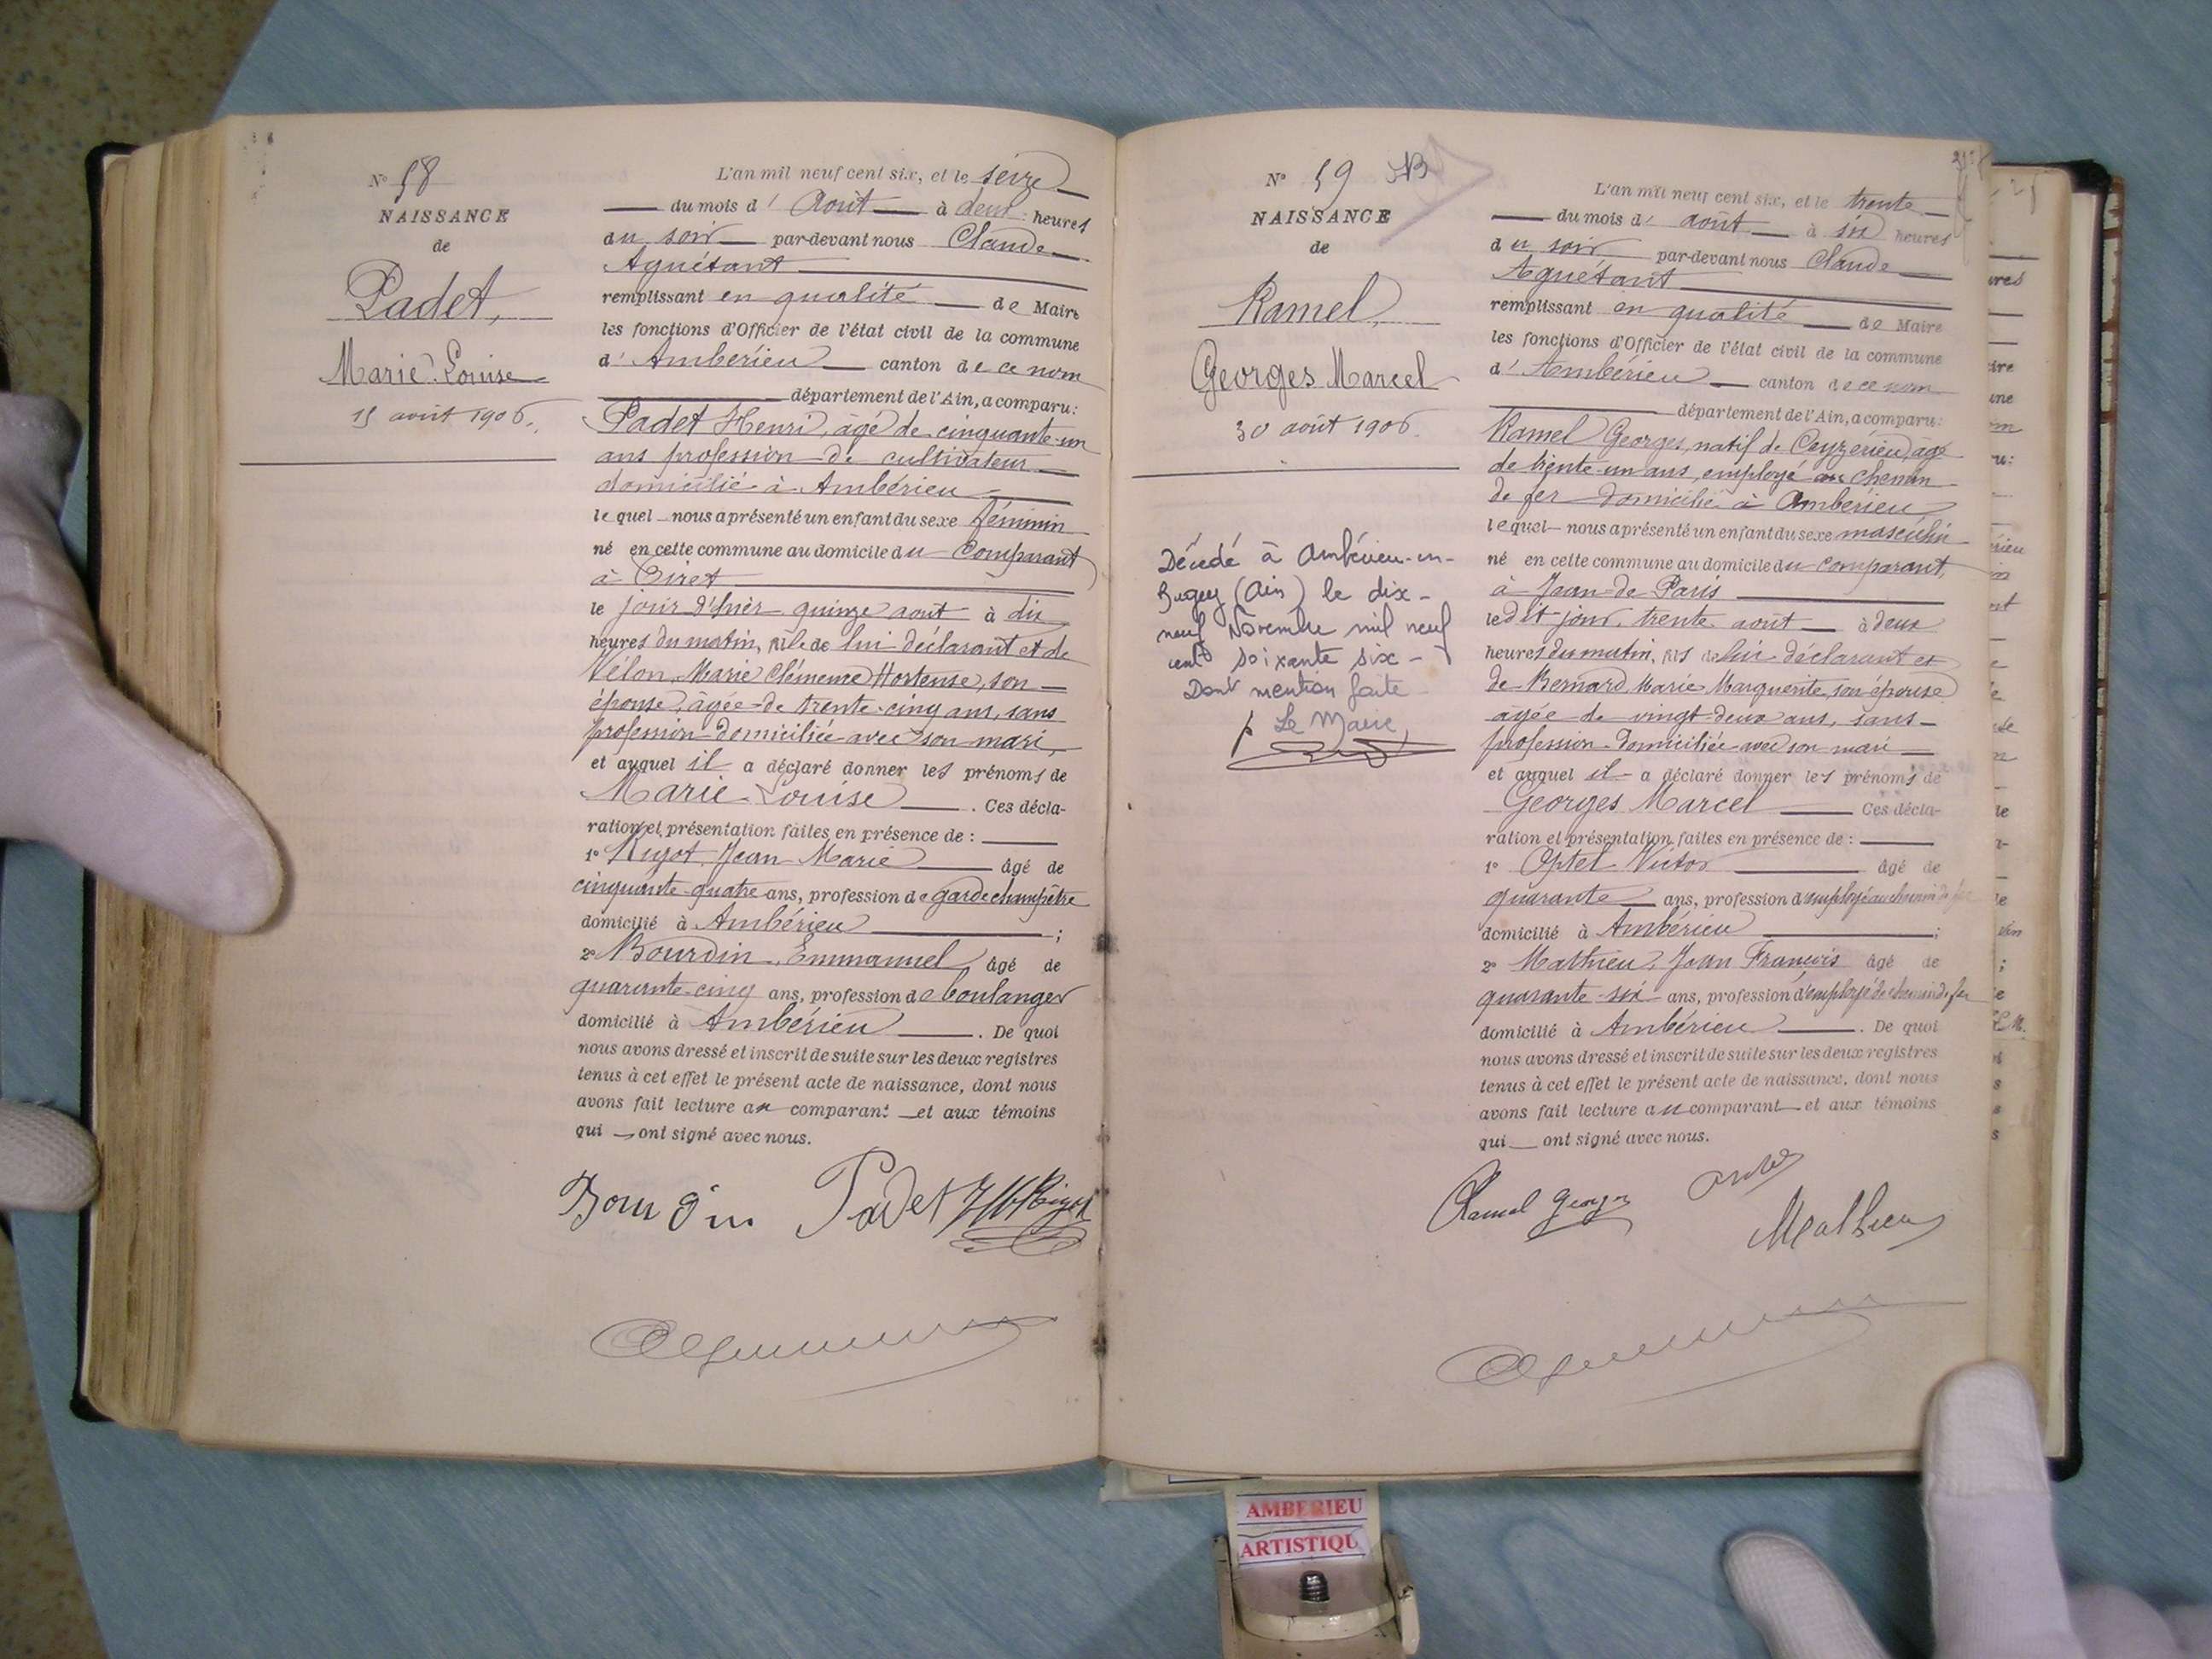 N° 58
NAISSANCE
de
Padet,
Marie Louise
15 août 1906.
L'an mil neuf cent six, et le seize
du mois d' Août à deux heures
du soir par-devant nous Claude
Aguétant
remplissant en qualité de Maire
les fonctions d'Officier de l'état civil de la commune
d' Ambérieu canton de ce nom
département de l'Ain, a comparu:
Padet Henri, âgé de cinquante-un
ans profession de cultivateur
domicilié à Ambérieu
lequel nous a présenté un enfant du sexe féminin
né en cette commune au domicile du Comparant
à Tiret
le jour d'hier quinze août à dix
heures du matin, fille de lui déclarant et de
Vélon, Marie Clémence Hortense, son
épouse, âgée de trente-cinq ans, sans
profession domiciliée avec son mari,
et auquel il a déclaré donner les prénoms de
Marie Louise. Ces décla-
ration et présentation faites en présence de :
1° Rigot, Jean Marie âgé de
cinquante-quatre ans, profession de garde champêtre
domicilié à Ambérieu ;
2° Bourdin, Emmanuel, âgé de
quarante-cinq ans, profession de boulanger
domicilié à Ambérieu. De quoi
nous avons dressé et inscrit de suite sur les deux registres
tenus à cet effet le présent acte de naissance, dont nous
avons fait lecture au comparant et aux témoins
qui ont signé avec nous.
Bourdin Padet JM Rigot
N° 59
NAISSANCE
de
Ramel,
Georges Marcel
30 août 1906.
Décédé à Ambérieu-en-
Bugey (Ain) le dix-
neuf Novembre mil neuf
cent soixante six-
Dont mention faite
p Le Maire,
L'an mil neuf cent six, et le trente
du mois d' août à six heures
du soir par-devant nous Claude
Aguétant
remplissant en qualité de Maire
les fonctions d'Officier de l'état civil de la commune
d' Ambérieu canton de ce nom
département de l'Ain, a comparu:
Ramel Georges, natif de Ceyzérieu, âgé
de trente-un ans, employé au chemin
de fer domicilié à Ambérieu
lequel nous a présenté un enfant du sexe masculin
né en cette commune au domicile du comparant,
à Jean de Paris
le dit jour, trente août à deux
heures du matin, fils de lui déclarant et
de Bernard Marie Marguerite, son épouse
âgée de vingt-deux ans, sans
profession domiciliée avec son mari
et auquel il a déclaré donner les prénoms de
Georges Marcel Ces décla-
ration et présentation faites en présence de :
1° Victor âgé de
quarante ans, profession d'employé au chemin de fer
domicilié à Ambérieu ;
2° Mathieu, Jean François âgé de
quarante-six ans, profession d'employé de chemin de fer
domicilié à Ambérieu. De quoi
nous avons dressé et inscrit de suite sur les deux registres
tenus à cet effet le présent acte de naissance, dont nous
avons fait lecture au comparant et aux témoins
qui ont signé avec nous.
Ramel Georges
Mathieu
AMBERIEU
ARTISTIQU